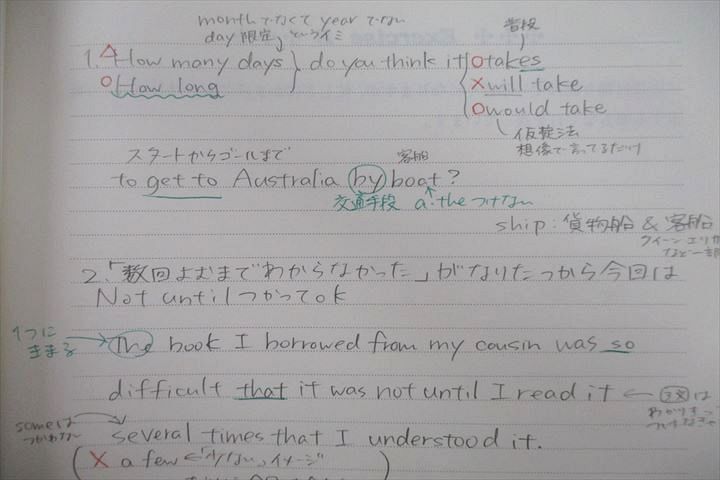 monthでなくてyearでない
day限定というイミ
普段
1. △How many days } do you think it ○takes
○How long
×will take
○would take
仮定法
想像で言ってるだけ
スタートからゴールまで
客船
to get to Australia by boat?
交通手段 a.theつけない
ship: 貨物船 & 客船
クイーンエリ
など一部
2.「数回よむまでわからなかった」がなりたつから今回は
Not untilつかってok
1つに
きまる
The book I borrowed from my cousin was so
difficult that it was not until I read it ←
は
someは
つかわない
several times that I understood it.
(× a few ←「少ない」イメージ